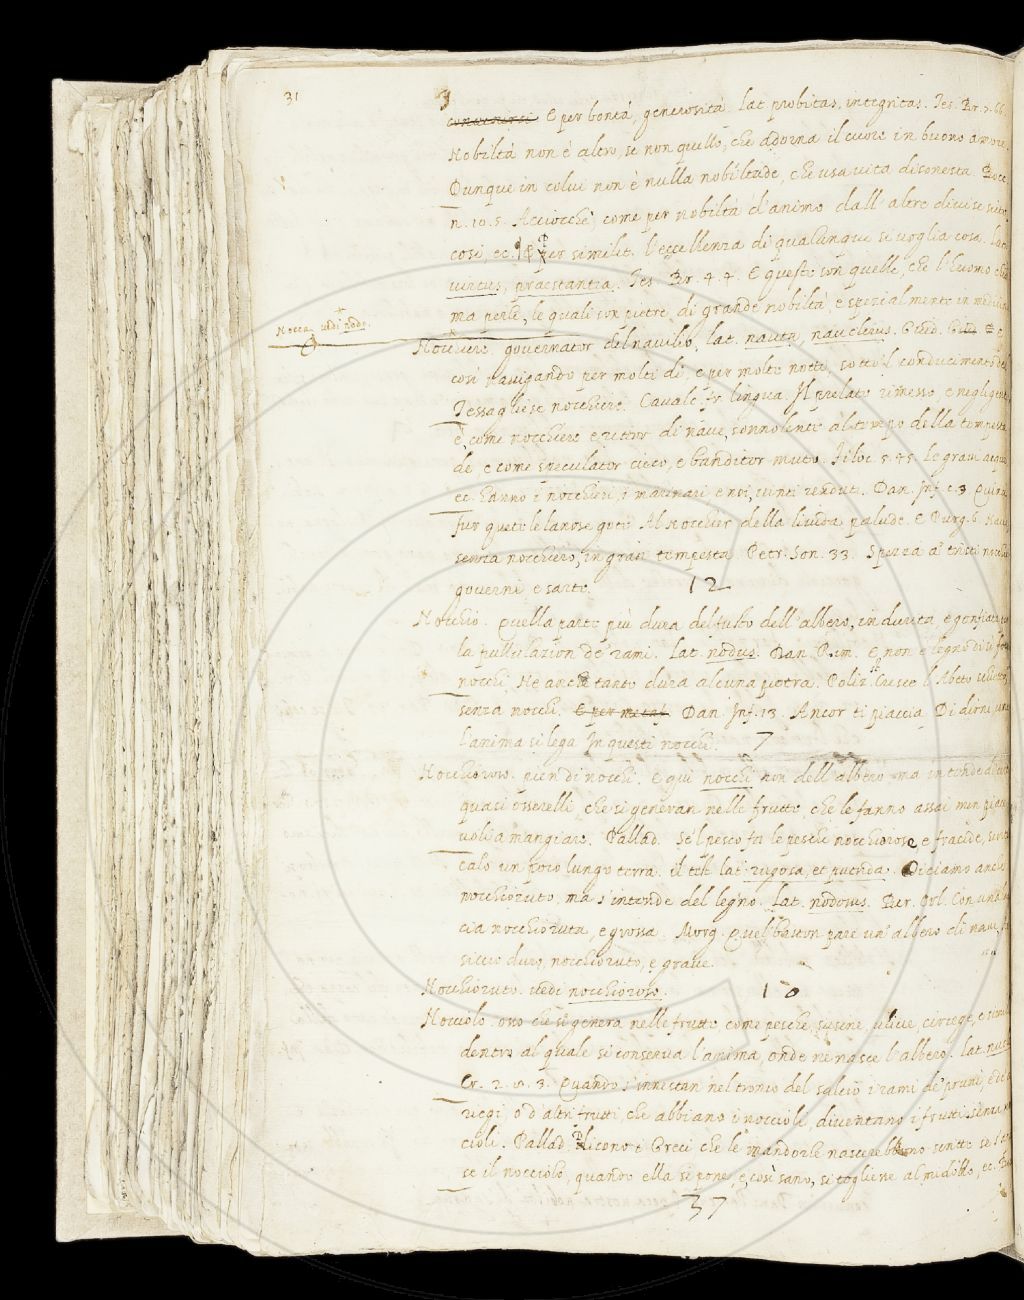 31
convenirsi E per bontà, generosità. Lat. probitas, integritas. Tes. Br. 7. 66.
Nobiltà non è altro, se non quello, che adorna il cuore in buono amore.
Dunque in colui non è nulla nobiltade, che usa vita disonesta. Bocc.
n. 10. 5. Acciocchè, come per nobiltà d'animo dall' altre divise siete
così, ec. E per similit. l'eccellenza di qualunque si voglia cosa. Lat.
virtus, praestantia. Tes. Br. 4. 4. E queste son quelle, che l'huomo
ma perle, le quali son pietre di grande nobiltà, e spezialmente in medicina
Nocca vedi nodo.
Nocchiere. governator del navilio, lat. nauta, nauclerus.
così navigando per molti dì, e per molte notti, sotto 'l conducimento del
Tessagliese nocchiere. Cavalc. fr. lingua. Il prelato rimesso, e negligente
è, come nocchiere e rettor di nave, sonnolente al tempo della tempesta
de e come speculator cieco, e banditor muto. Filoc. 5. 45. le gravi acque
ec. hanno i nocchieri, i marinari e noi, vinti renduti. Dan. Inf. c. 3 Quinci
fur quete le lanose gote Al nocchier della livida palude. E Purg. 6 Nave
senza nocchiero, in gran tempesta. Petr. Son. 33. Spezza a' tristi nocchier
governi e sarte. 12
Nocchio. Quella parte più dura del fusto dell' albero, indurita e gonfiata
la pullulazion de' rami. Lat. nodus. Dan. Rim. E non è legno di sì forti
nocchi, Nè anche tanto dura alcuna pietra. Poliz. Cresce l'Abeto schietto
senza nocchi. E per metaf. Dan. Inf. 13. Ancor ti piaccia Di dirne, come
l'anima si lega In questi nocchi. 7
Nocchioroso. pien di nocchi. E qui nocchi non dell' albero ma intende di
quasi osserelli, che si generan nelle frutte, che le fanno assai men piace
voli a mangiare. Pallad. Se 'l pesco fa le pesche nocchiorose, e fracide,
calo un poco lungo terra. il test. lat. rugosa, et putrida. Diciamo anche
nocchioruto, ma s'intende del legno. Lat. nodosus. Ber. Orl. Con una
cia nocchioruta, e grossa. Morg. Quel baston pare un' albero di nave,
siccio duro, nocchioruto, e grave.
Nocchioruto. vedi nocchioroso. 10
Nocciolo. osso che si genera nelle frutte come pesche, susine, ulive, ciriege, e simili
dentro al quale si conserva l'anima, onde ne nasce l'albero. Lat.
Cr. 2. 8. 3. Quando s'innestan nel tronco del salcio i rami de' pruni,
riegi, o d'altri frutti, che abbiano i noccioli, diventano i frutti senza
cioli. Pallad. Dicono i Greci che le mandorle nascerebbono scritte
se il nocciolo, quando ella si pone, e così sano, si togliesse al midollo, ec.
37